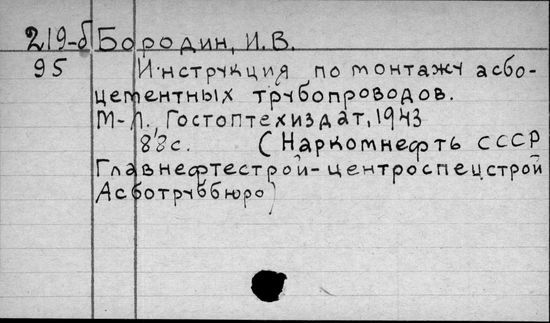 219-б Бородин, И.В.
95 Инструкция по монтажу асбо-
цементных трубопроводов.
М-Л. Гостоптехиздат, 1943
88с. (Наркомнефть СССР
Главнефтестрой-центроспецстрой
Асботруббюро)